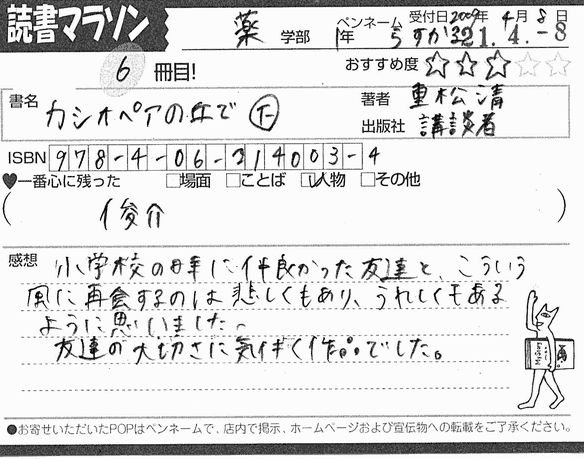 読書マラソン
薬 学部 1年 ペンネーム うすか 受付日 2009年 4月 8日
21. 4. - 8
6 冊目!
おすすめ度 ☆☆☆☆☆
書名 カシオペアの丘で 下
著者 重松清
出版社 講談者
ISBN 978-4-06-214003-4
♥一番心に残った □場面 □ことば ☑人物 □その他
( 俊介 )
感想 小学校の時に仲良かった友達と、こういう
風に再会するのは悲しくもあり、うれしくもある
ように思いました。
友達の大切さに気付く作品でした。
●お寄せいただいたPOPはペンネームで、店内で掲示、ホームページおよび宣伝物への転載をご了承ください。